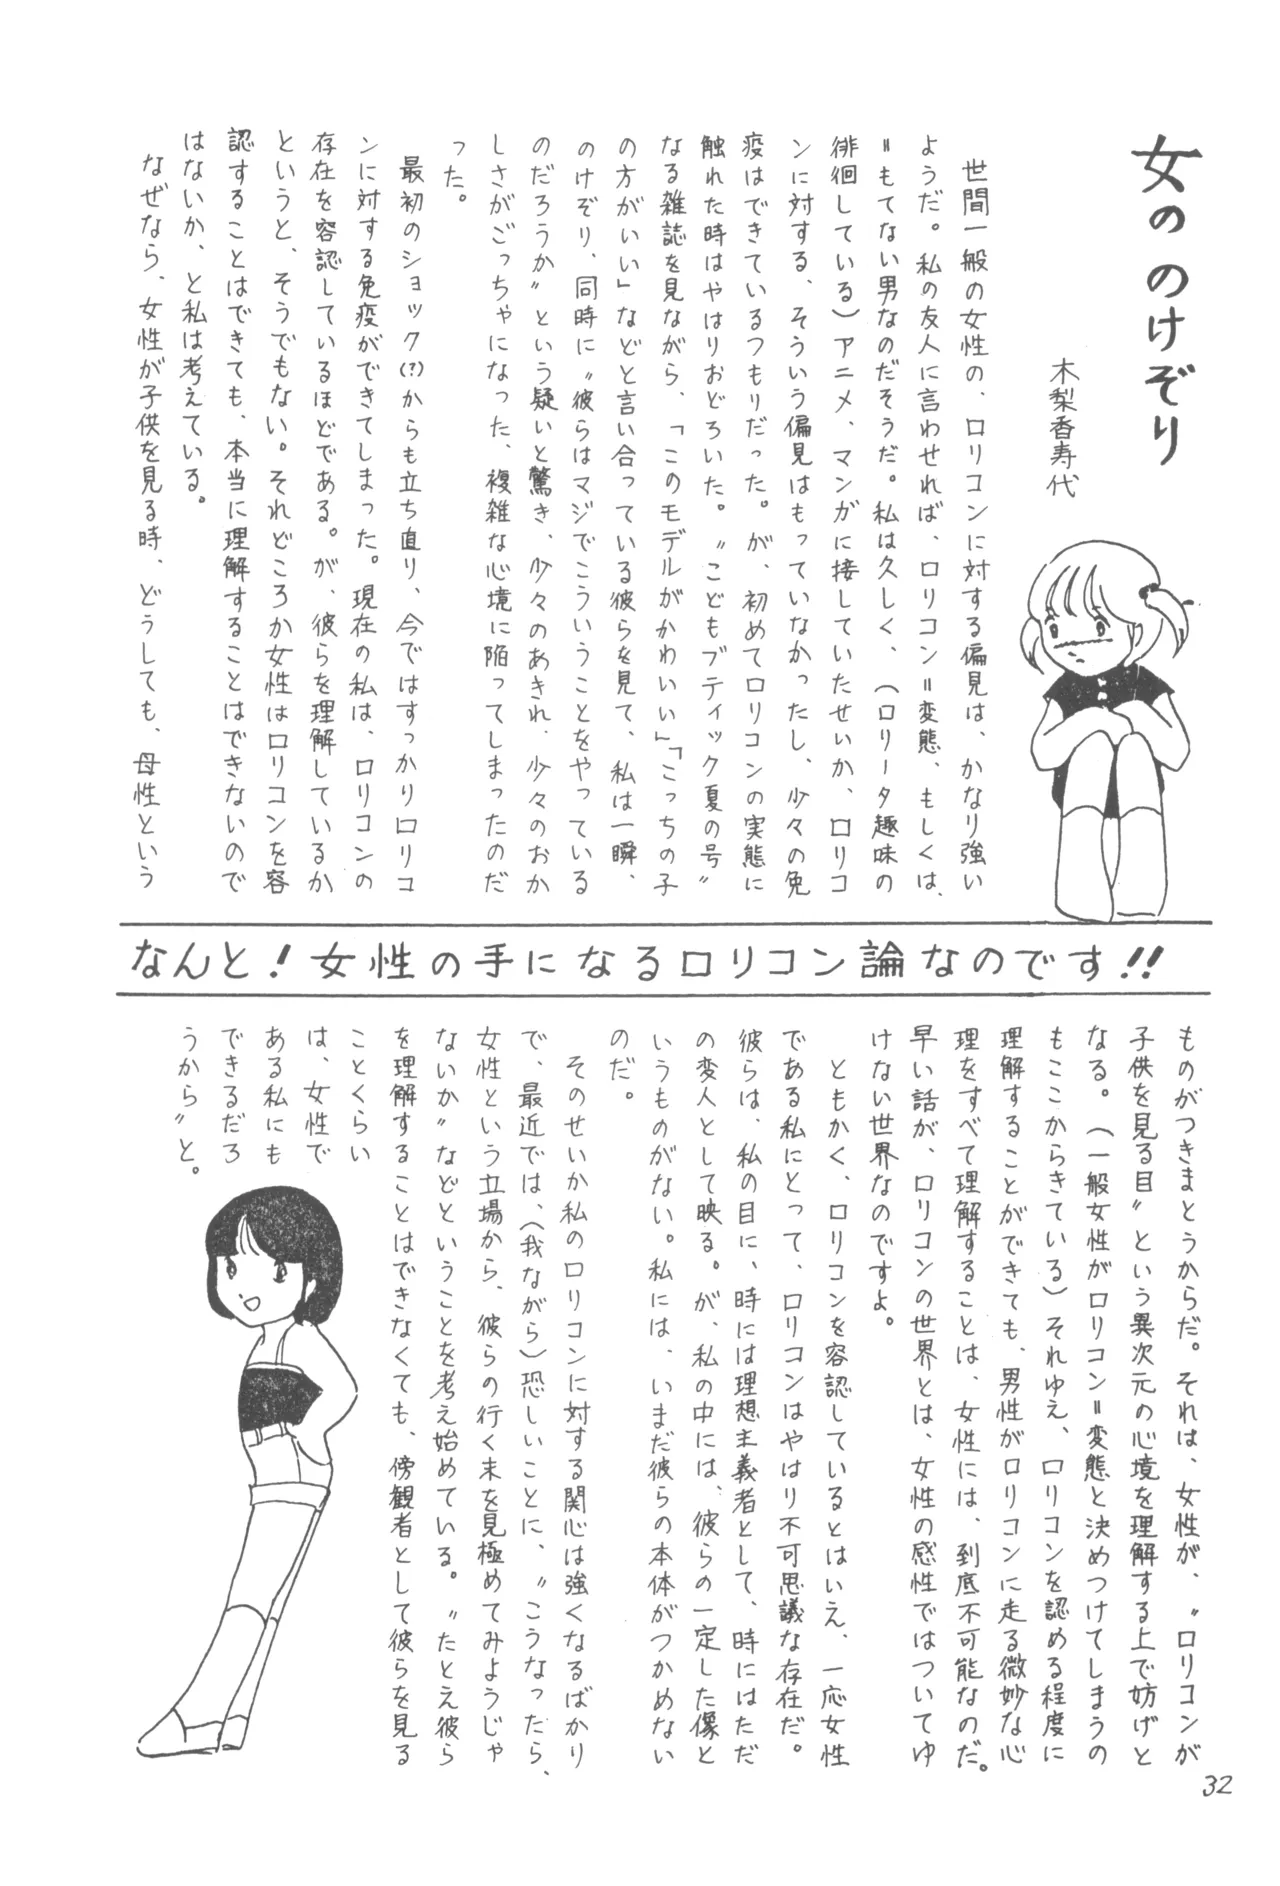 女の のけぞり
木梨香寿代
世間一般の女性の、ロリコンに対する偏見は、かなり強い
ようだ。私の友人に言わせれば、ロリコン=変態、もしくは、
=もてない男なのだそうだ。私は久しく、（ロリータ趣味の
徘徊している）アニメ、マンガに接していたせいか、ロリコ
ンに対する、そういう偏見はもっていなかったし、少々の免
疫はできているつもりだった。が、初めてロリコンの実態に
触れた時はやはりおどろいた。〝こどもブティック夏の号〟
なる雑誌を見ながら、「このモデルがかわいい」「こっちの子
の方がいい」などと言い合っている彼らを見て、私は一瞬、
のけぞり、同時に〝彼らはマジでこういうことをやっている
のだろうか〟という疑いと驚き、少々のあきれ、少々のおか
しさがごっちゃになった、複雑な心境に陥ってしまったのだ
った。
最初のショック(?)からも立ち直り、今ではすっかりロリコ
ンに対する免疫ができてしまった。現在の私は、ロリコンの
存在を容認しているほどである。が、彼らを理解しているか
というと、そうでもない。それどころか女性はロリコンを容
認することはできても、本当に理解することはできないので
はないか、と私は考えている。
なぜなら、女性が子供を見る時、どうしても、母性という
なんと!女性の手になるロリコン論なのです!!
ものがつきまとうからだ。それは、女性が、〝ロリコンが
子供を見る目〟という異次元の心境を理解する上で妨げと
なる。（一般女性がロリコン=変態と決めつけてしまうの
もここからきている）それゆえ、ロリコンを認める程度に
理解することができても、男性がロリコンに走る微妙な心
理をすべて理解することは、女性には、到底不可能なのだ。
早い話が、ロリコンの世界とは、女性の感性ではついてゆ
けない世界なのですよ。
ともかく、ロリコンを容認しているとはいえ、一応女性
である私にとって、ロリコンはやはり不可思議な存在だ。
彼らは、私の目に、時には理想主義者として、時にはただ
の変人として映る。が、私の中には、彼らの一定した像と
いうものがない。私には、いまだ彼らの本体がつかめない
のだ。
そのせいか私のロリコンに対する関心は強くなるばかり
で、最近では、（我ながら）恐しいことに、〝こうなったら、
女性という立場から、彼らの行く末を見極めてみようじゃ
ないか〟などということを考え始めている。〝たとえ彼ら
を理解することはできなくても、傍観者として彼らを見る
ことくらい
は、女性で
ある私にも
できるだろ
うから〟と。
32